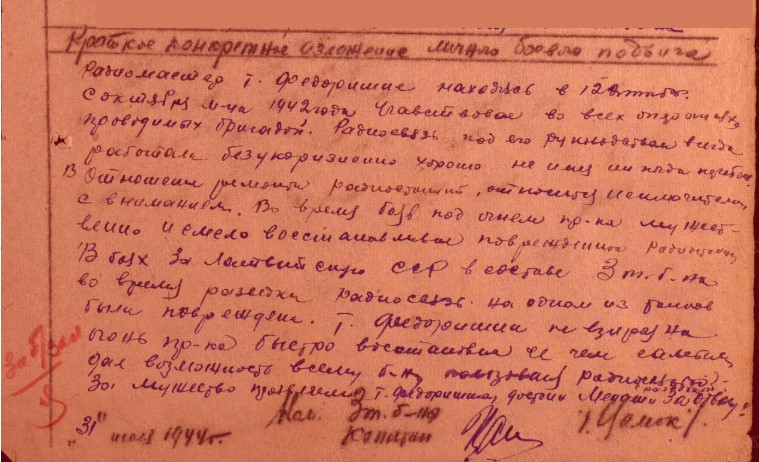 Краткое конкретное изложение личного боевого подвига
Радиомастер т. Федоришин находясь в 12 
с октября м-ца 1942 года Участвовал во всех
проводимых бригадой. Радиосвязь под его руководством всегда
работала безукоризненно хорошо не имея ни
В отношении ремонта радиостанций, относится исключительно
с вниманием. Во время боёв под огнём пр-ка мужест-
венно и смело восстанавливал повреждённые радиостанции
В боях за Латвийскую ССР в составе 3 т. б-на
во время разведки радиосвязь на одном из танков
была повреждена. Т. Федоришин не взирая на
огонь пр-ка быстро восстановил её чем самым
дал возможность всему б-ну пользоваться радиосвязью.
За мужество т. Федоришин достоин Медали
"За отвагу"
За б/зал
Нач. 3 т. б-на
Капитан
"31" июля 1944 г.